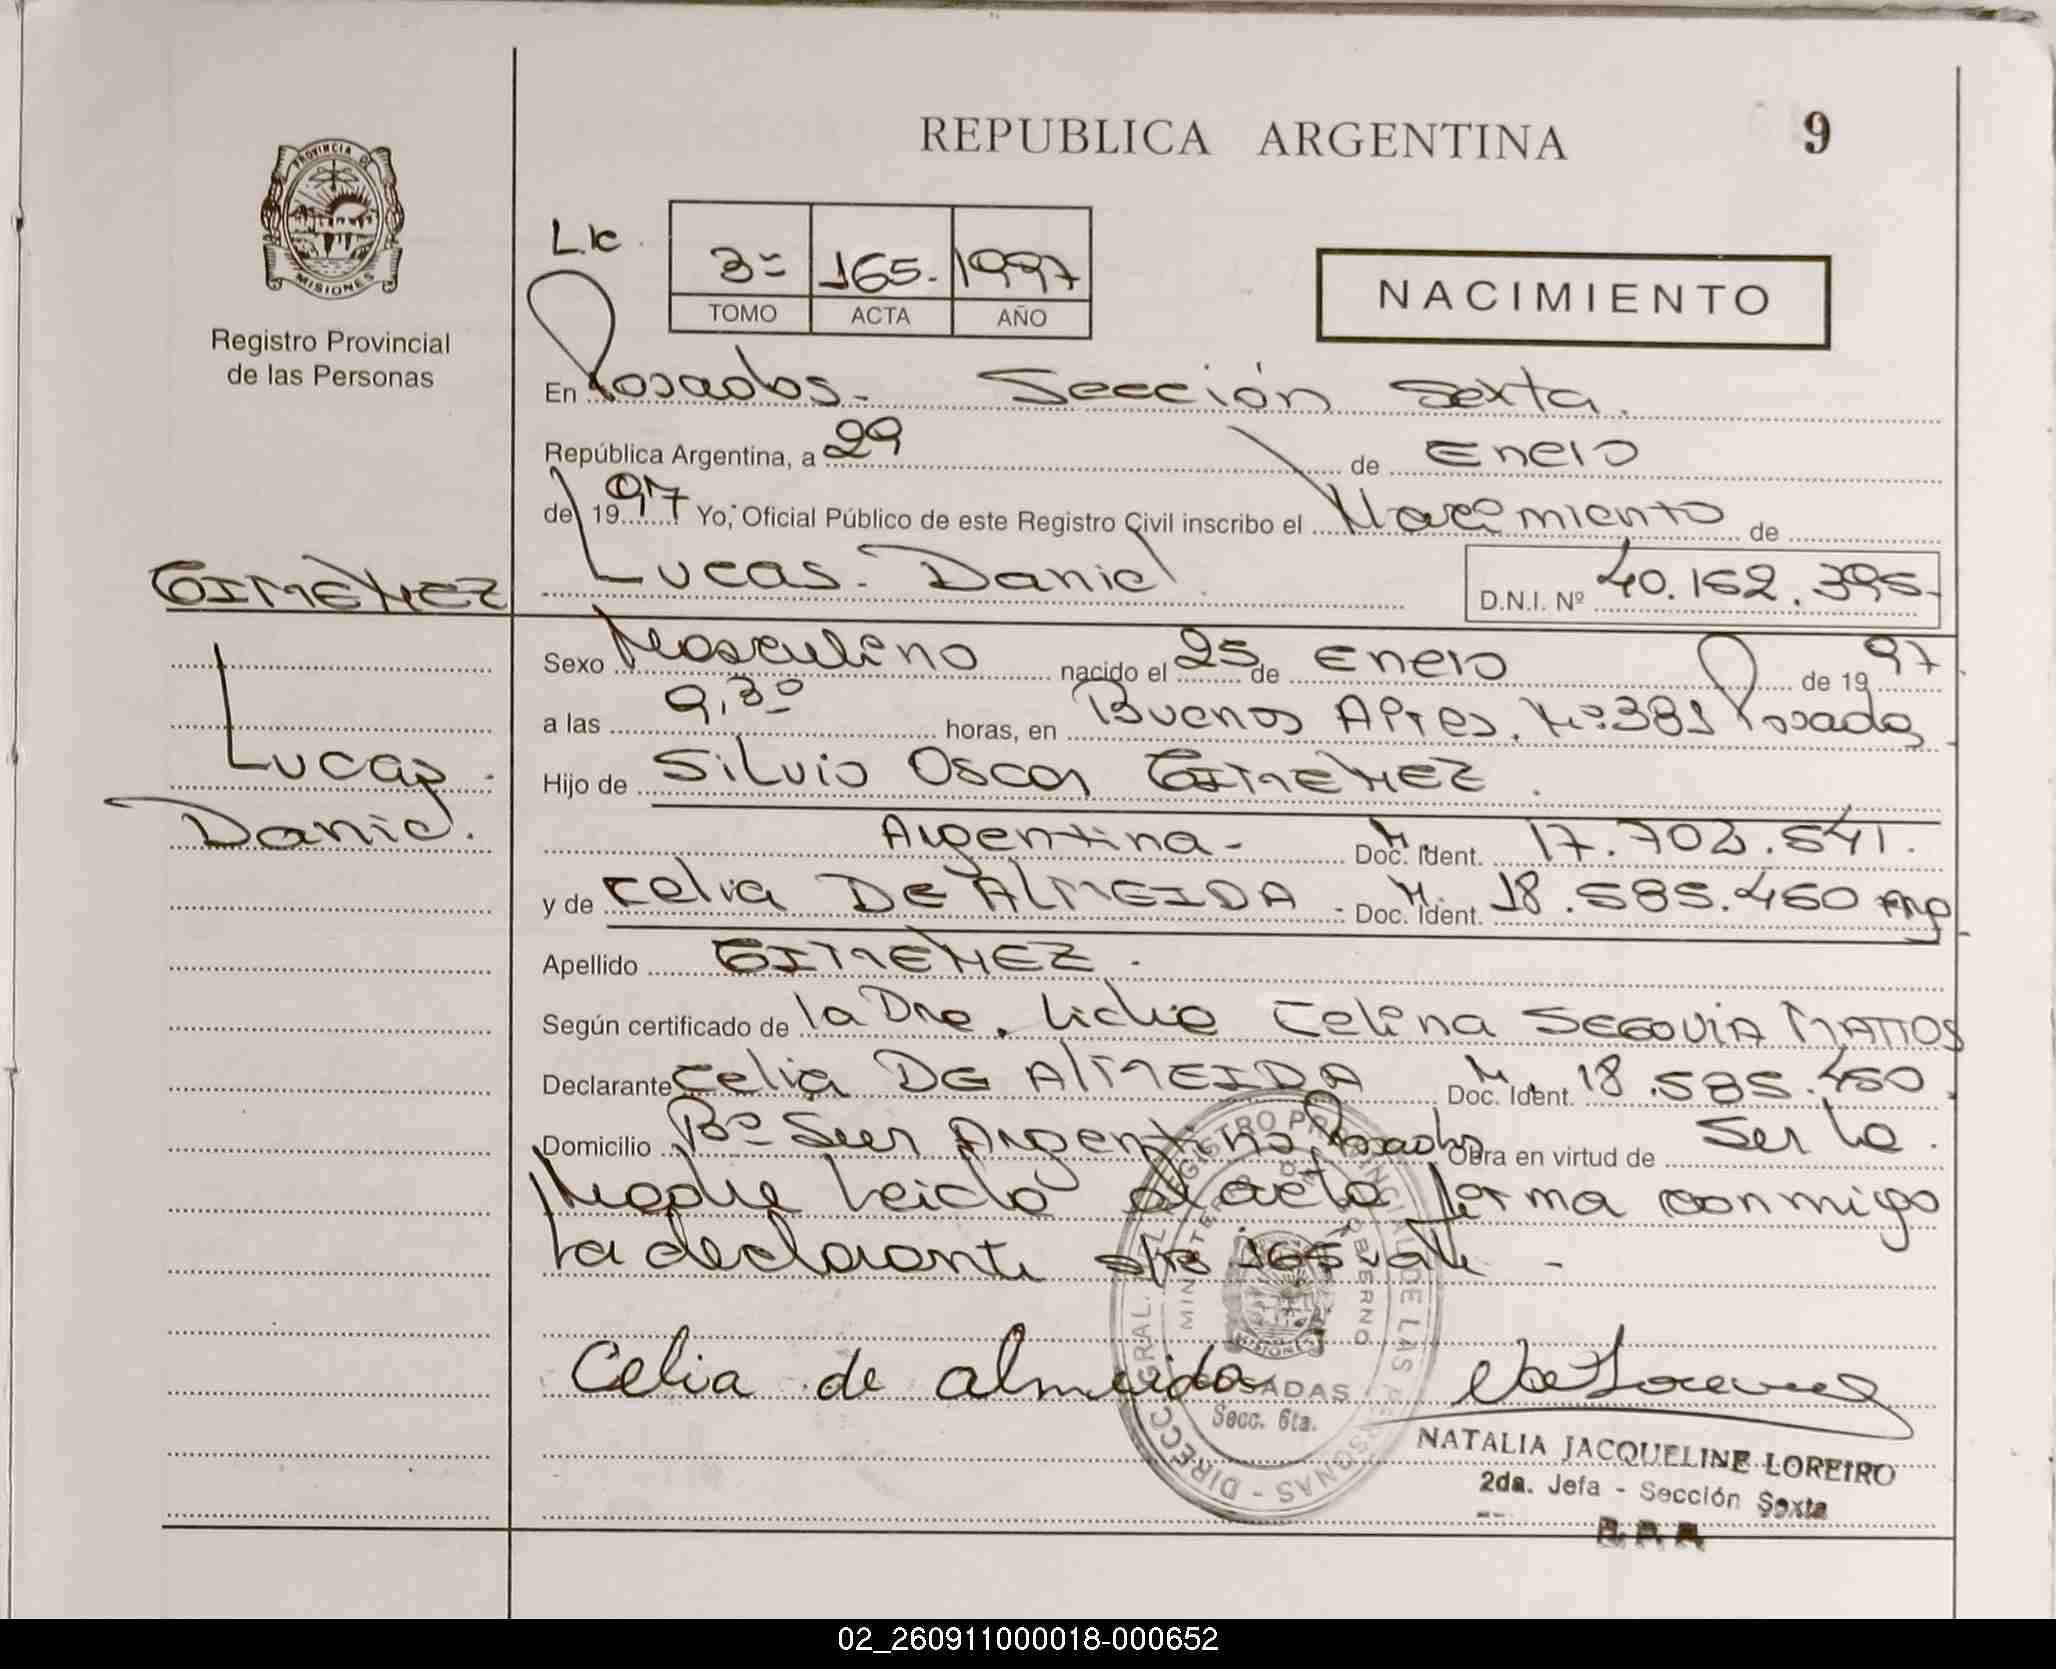 REPUBLICA ARGENTINA
9
PROVINCIA DE
MISIONES
Registro Provincial
de las Personas
3º 165. 1997
TOMO ACTA AÑO
NACIMIENTO
En Posadas. Sección Sexta.
República Argentina, a 29 de Enero
de 1997 Yo, Oficial Público de este Registro Civil inscribo el Nacimiento de
Lucas Daniel D.N.I. Nº 40.152.395
GIMENEZ
Lucas
Daniel.
Sexo Masculino nacido el 25 de Enero de 1997
a las 9,30 horas, en Buenos Aires. Nº 381 Posadas
Hijo de Silvio Oscar GIMENEZ
Argentina - Doc. Ident. 17.702.541.
y de Celia DE ALMEIDA - Doc. Ident. 18.585.450 Arg
Apellido GIMENEZ.
Según certificado de la Dra. Lidia Celina SEGOVIA MATTOS
Declarante Celia DE ALMEIDA Doc. Ident. 18.585.450
Domicilio Bº Sur Argentino Posadas Obra en virtud de Ser la
Madre Leida el acta firma conmigo
La declarante s/r 165 vale -
Celia de almeida
DIRECC. GRAL. REGISTRO PROVINCIAL DE LAS PERSONAS
MINISTERIO DE GOBIERNO
MISIONES
POSADAS
Secc. 6ta.
NATALIA JACQUELINE LOREIRO
2da. Jefa - Sección Sexta
02_260911000018-000652